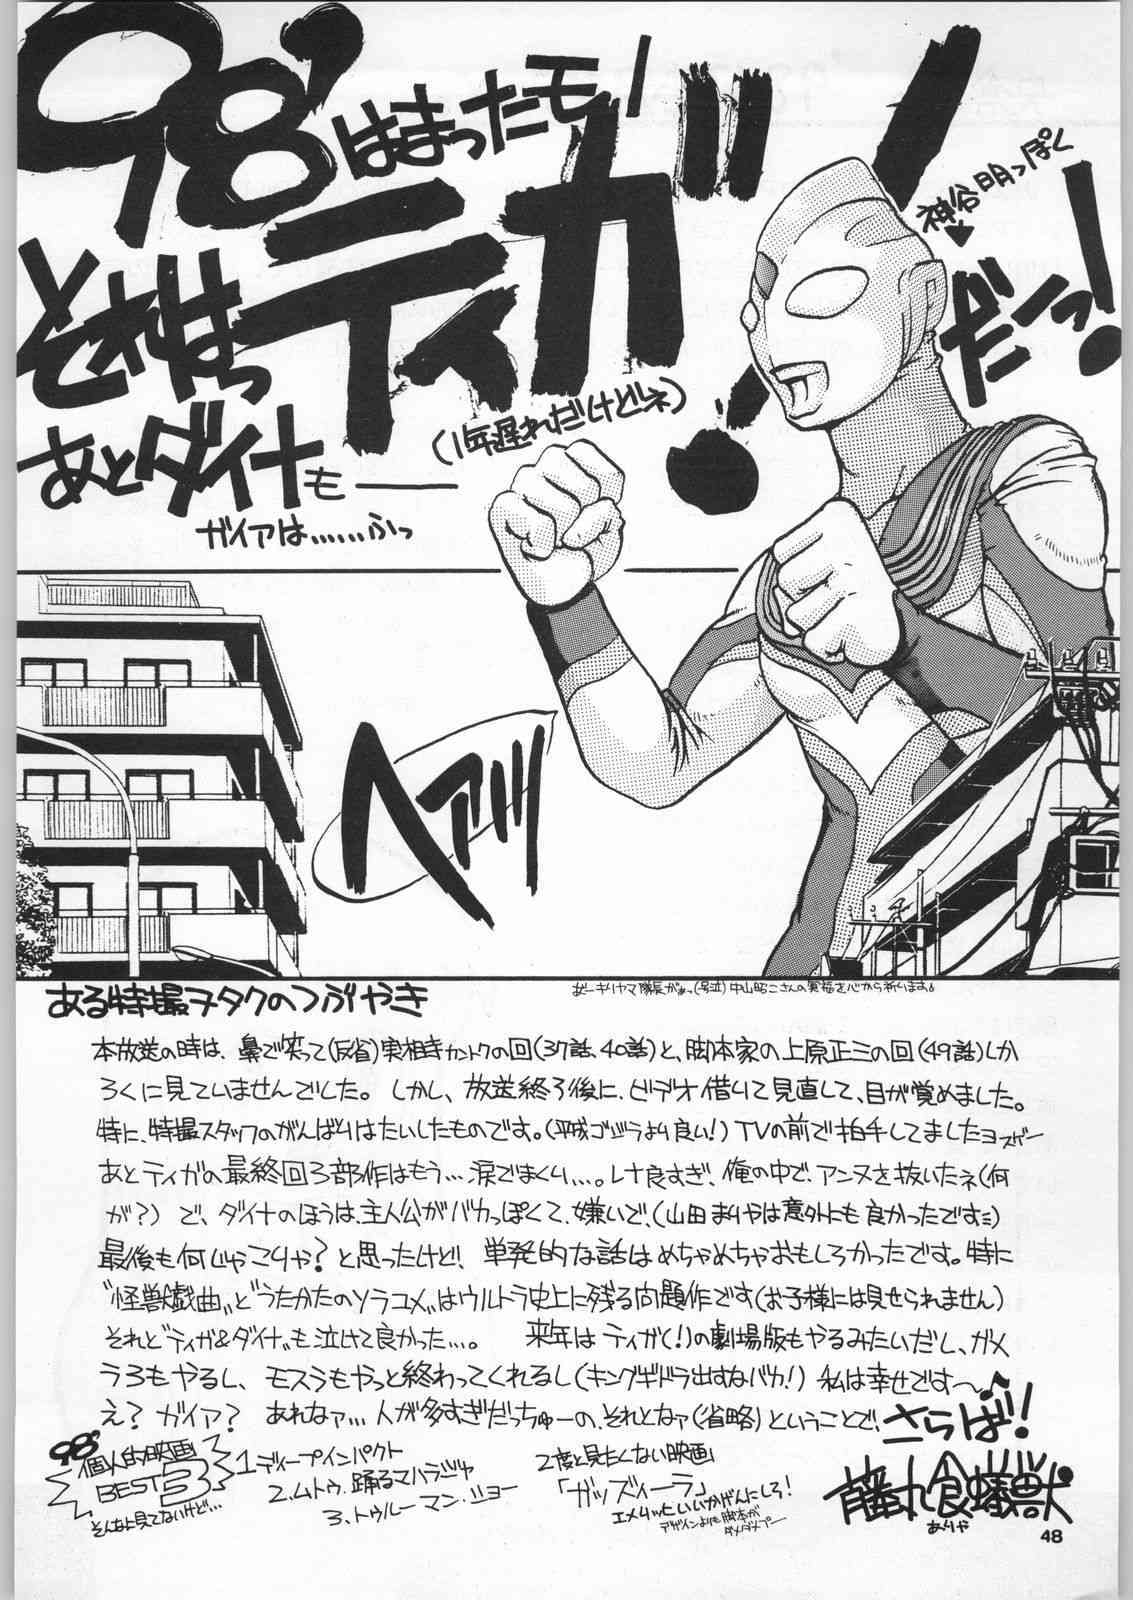 98'
はまったモノ
それはっ
ティガ!
だーっ!
神谷明っぽく
(1年遅れだけどネ)
あとダイナも――
ガイアは……ふっ
ヘアッ
ある特撮ヲタクのつぶやき
あーキリヤマ隊長がぁっ(号泣)中山昭二さんの冥福を心から祈います。
本放送の時は、鼻で笑って(反省)実相寺カントクの回(37話、40話)と、脚本家の上原正三の回(49話)しか
ろくに見ていませんでした。しかし、放送終了後に、ビデオ借りて見直して、目が覚めました。
特に、特撮スタッフのがんばりはたいしたものです。(平成ゴジラより良い!)TVの前で拍手してましたヨスゲー
あとティガの最終回3部作はもう…涙でまくり…。レナ良すぎ、俺の中で、アンヌを抜いたネ(何
が?)で、ダイナのほうは、主人公がバカっぽくて、嫌いで、(山田まりやは意外にも良かったです)
最後も何じゃこりゃ?と思ったけど!単発的な話はめちゃめちゃおもしろかったです。特に
"怪獣戯曲"と"うたかたのソラユメ"はウルトラ史上に残る問題作です(お子様には見せられません)
それと"ティガ&ダイナ"も泣けて良かった…。 来年はティガ(!)の劇場版もやるみたいだし、ガメ
ラ3もやるし、モスラもやっと終わってくれるし(キングギドラ出すなバカ!)私は幸せです〜♪
え?ガイア? あれなァ…人が多すぎだっちゅーの、それとなァ(省略)ということで、さらば!!
98' 個人的映画
BEST3
そんなに見てないけど…
1ディープインパクト
2.ムトゥ 踊るマハラジャ
3、トゥルーマン・ショー
2度と見たくない映画
「ガッズィーラ」
エメリッヒいいかげんにしろ!
デザインよりも脚本が
ダメダメプー
食蟻獣
ありや
48